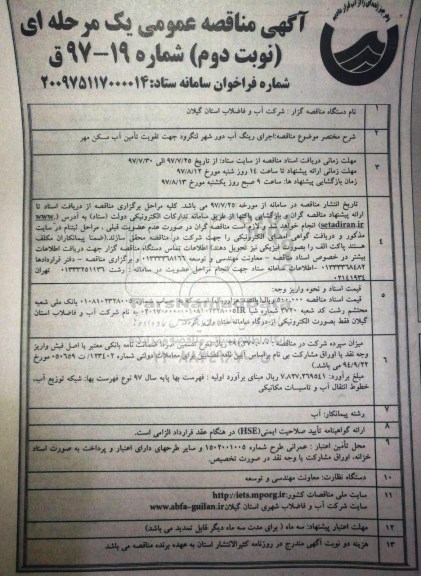 آگهی مناقصه عمومی یک مرحله ای
(نوبت دوم) شماره ۱۹-۹۷ ق
شماره فراخوان سامانه ستاد: ۲۰۰۹۷۵۱۱۷۰۰۰۰۱۴
۱ نام دستگاه مناقصه گزار : شرکت آب و فاضلاب استان گیلان
۲ شرح مختصر موضوع مناقصه:اجرای رینگ آب دور شهر لنگرود جهت تقویت تأمین آب مسکن مهر
مهلت زمانی دریافت اسناد مناقصه از سایت ستاد: از تاریخ ۹۷/۷/۲۵ الی ۹۷/۷/۳۰
۳ مهلت زمانی ارائه پیشنهاد تا ساعت ۱۴ روز شنبه مورخ ۹۷/۸/۱۲
زمان بازگشایی پیشنهاد ها: ساعت ۹ صبح روز یکشنبه مورخ ۹۷/۸/۱۳
تاریخ انتشار مناقصه در سامانه از مورخه ۹۷/۷/۲۵ می باشد. کلیه مراحل برگزاری مناقصه از دریافت اسناد تا
ارائه پیشنهاد مناقصه گران و بازگشایی پاکتها از طریق سامانه تدارکات الکترونیکی دولت (ستاد) به آدرس (www.
setadiran.ir) انجام خواهد شد و لازم است مناقصه گران در صورت عدم عضویت قبلی ، مراحل ثبتنام در سایت
مذکور و دریافت گواهی امضای الکترونیکی را جهت شرکت در مناقصه محقق سازند.(ضمنا پیمانکاران مکلف
۴ هستند پاکت الف را بصورت فیزیکی نیز تحویل دهند) اطلاعات تماس دستگاه مناقصه گزار جهت دریافت اطلاعات
بیشتر در خصوص اسناد مناقصه - معاونت مهندسی و توسعه و برگزاری مناقصه - دفتر قراردادها
-اطلاعات سامانه ستاد جهت انجام مراحل عضویت در سامانه : رشت تهران
۵ قیمت اسناد و نحوه واریز وجه:
قیمت اسناد مناقصه بانک ملی شعبه
محتشم رشت کد شعبه ۳۷۲۰ شماره شبا به نام شرکت آب و فاضلاب استان
گیلان فقط بصورت الکترونیکی از درگاه سامانه ستاد
میزان سپرده شرکت در مناقصه: ضمانت نامه بانکی معتبر یا اصل فیش واریز
وجه نقد یا اوراق مشارکت بی نام براساس آیین نامه تضمین برای معاملات دولتی شماره ۱۲۳۴۰۲/ت ۵۰۶۵۹ ه مورخ
۶ ۹۴/۹/۲۲ می باشد.)
مبلغ برآورد: ۷،۸۳۷،۳۶۹،۵۴۱ ریال مبنای برآورد اولیه : فهرست بها پایه سال ۹۷ نوع فهرست بها: شبکه توزیع آب،
خطوط انتقال آب و تاسیسات مکانیکی
۷ رشته پیمانکار: آب
۸ ارائه گواهینامه تأیید صلاحیت ایمنی(HSE) در هنگام عقد قرارداد الزامی است.
۹ محل تأمین اعتبار : عمرانی طرح شماره ۱۵۰۲۰۰۱۰۰۵ و سایر طرحهای دارای اعتبار و پرداخت به صورت اسناد
خزانه، اوراق مشارکت یا وجه نقد در صورت تخصیص.
۱۰ دستگاه نظارت: معاونت مهندسی و توسعه
۱۱ سایت ملی مناقصات کشور:http://iets.mporg.ir
سایت شرکت آب و فاضلاب شهری استان گیلان:www.abfa-guilan.ir
۱۲ مهلت اعتبار پیشنهاد: سه ماه ( برای مدت سه ماه دیگر قابل تمدید می باشد.)
۱۳ هزینه دو نوبت آگهی مندرج در روزنامه کثیرالانتشار استان به عهده برنده مناقصه می باشد